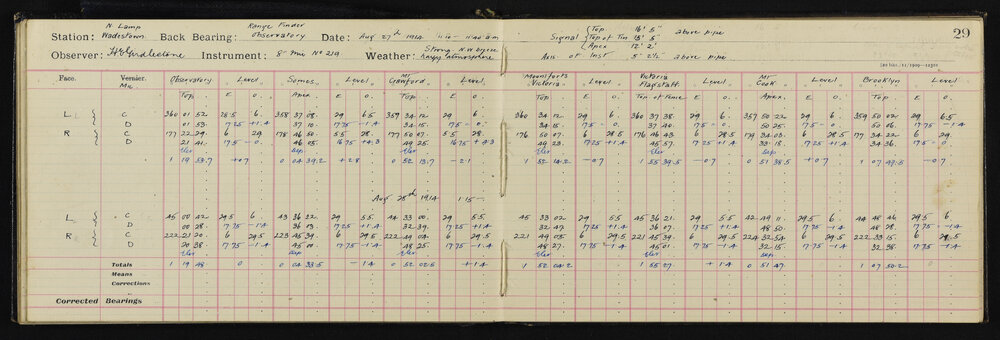 N. Lamp Range Finder
Station: Wadestown. Back Bearing: Observatory Date: Aug 27th 1914 11.10 - 11.40 a.m Signal { Top 16' 5" Top of Tin 13' 5" Apex 12' 2" above pipe 29
Observer: Instrument: 8" Mic No 219 Weather: Strong N.W. breeze hazy atmosphere Axis of Inst 5' 2½" above pipe
Face. Vernier. Mic Observatory Level. Somes. Level. Mt Crawford. Level. Mountforts Victoria Level. Victoria Flagstaff. Level. Mt Cook. Level. Brooklyn Level.
Top. E O. Apex E O. Top. E O. Top E O. Top of Fence E O. Apex. E O. Top E O.
L { C 360 01 52 28.5 6. 358 37 08. 29 6.5 359 34 12. 29 6. 360 34 12. 29 6. 360 37 38. 29 6. 357 50 22 29 6. 359 50 02 29 6.5
D 01 53. 17.25 +1.4 37 10. 17.75 - 0. 34 15. 17.5 0. 34 15. 17.5 0. 37 40. 17.5 0. 50 25. 17.5 0. 50 06. 17.75 -1.4
R { C 177 22 29. 6 29 178 46 50. 5.5 28. 177 50 07. 5.5 28. 176 50 07. 6 28.5 176 46 43. 6 28.5 179 34 03. 6 28.5 177 34 22 6 29
D 21 41. 17.5 - 0. 46 05 16.75 +4.3 49 25 16.75 +4.3 49 23. 17.25 +1.4 45 57. 17.25 +1.4 33 15. 17.25 +1.4 34 36. 17.5 0
1 19 53.7 +0.7 0 04 39.2 +2.8 0 52 13.7 -2.1 1 52 14.2 -0.7 1 55 39.5 -0.7 0 51 38.5 +0.7 1 07 49.5 -0.7
Aug 28th 1914 1.15
L { C 45 00 22 29.5 6. 43 36 22. 29 5.5 44 33 00. 29 5.5 45 33 02 29 5.5 45 36 21. 29 5.5 42 49 11. 29.5 6. 44 48 46 29.5 6
D 00 28. 17.75 -1.4 36 03. 17.25 +1.4 32 39. 17.25 +1.4 32 42. 17.25 +1.4 36 07. 17.25 +1.4 48 50. 17.75 -1.4 48 28. 17.75 -1.4
R { C 222 21 20. 6 29.5 223 45 39. 6 29.5 222 49 04 6 29.5 221 49 05 6 29.5 221 45 39. 6 29.5 224 32 54 6 29.5 222 33 15. 6 29.5
D 20 38. 17.75 -1.4 45 00. 17.75 -1.4 48 25. 17.75 -1.4 48 27. 17.75 -1.4 45 01 17.75 -1.4 32 15. 17.75 -1.4 32 38. 17.75 -1.4
Totals 1 19 48 0 0 04 33.5 -1.4 0 52 02.5 +1.4 1 52 04.2 1 55 27 +1.4 0 51 47. 1 07 50.2 0
Means
Corrections
Corrected Bearings